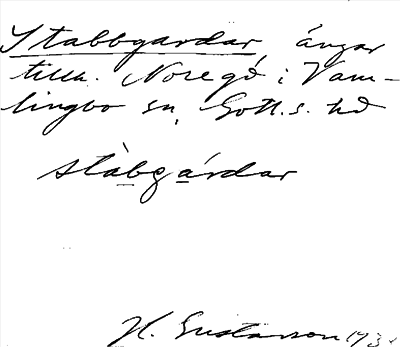 Stabbgardar, ängar
tillh. Nore gd i Vam-
lingbo sn, Gotl. s. hd
stàbgárdar
H. Gustavson